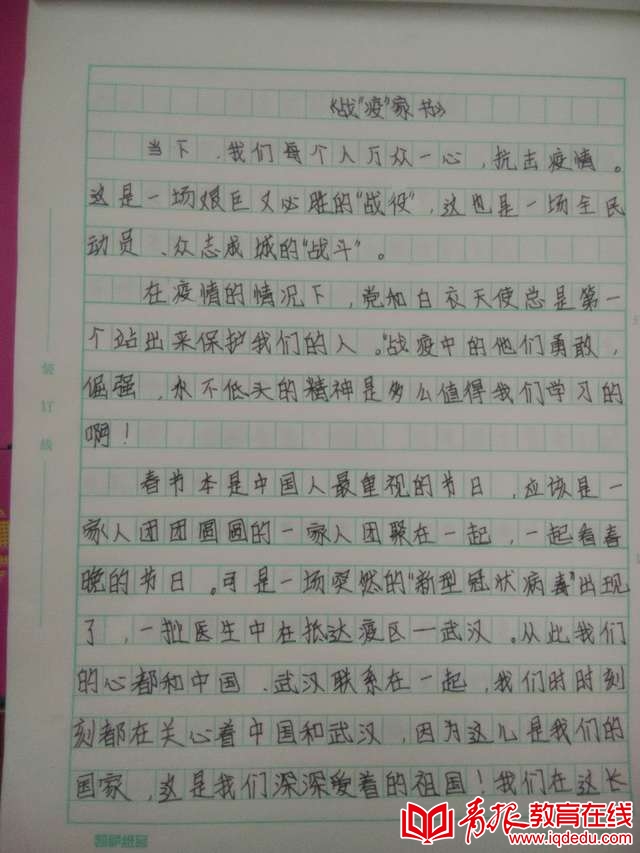 《战"疫"家书》
当下，我们每个人万众一心，抗击疫情。
这是一场艰巨又必胜的"战役"，这也是一场全民
动员、众志成城的"战斗"。
在疫情的情况下，党和白衣天使总是第一
个站出来保护我们的人。"战疫中的他们勇敢，
倔强，永不低头的精神是多么值得我们学习的
啊！
春节本是中国人最重视的节日，应该是一
家人团团圆圆的一家人团聚在一起，一起看春
晚的节日。可是一场突然的"新型冠状病毒"出现
了，一批医生中在抵达疫区—武汉。从此我们
的心都和中国、武汉联系在一起，我们时时刻
刻都在关心着中国和武汉，因为这儿是我们的
国家，这是我们深深爱着的祖国！我们在这长
装
订
线
青报教育在线
www.iqdedu.com